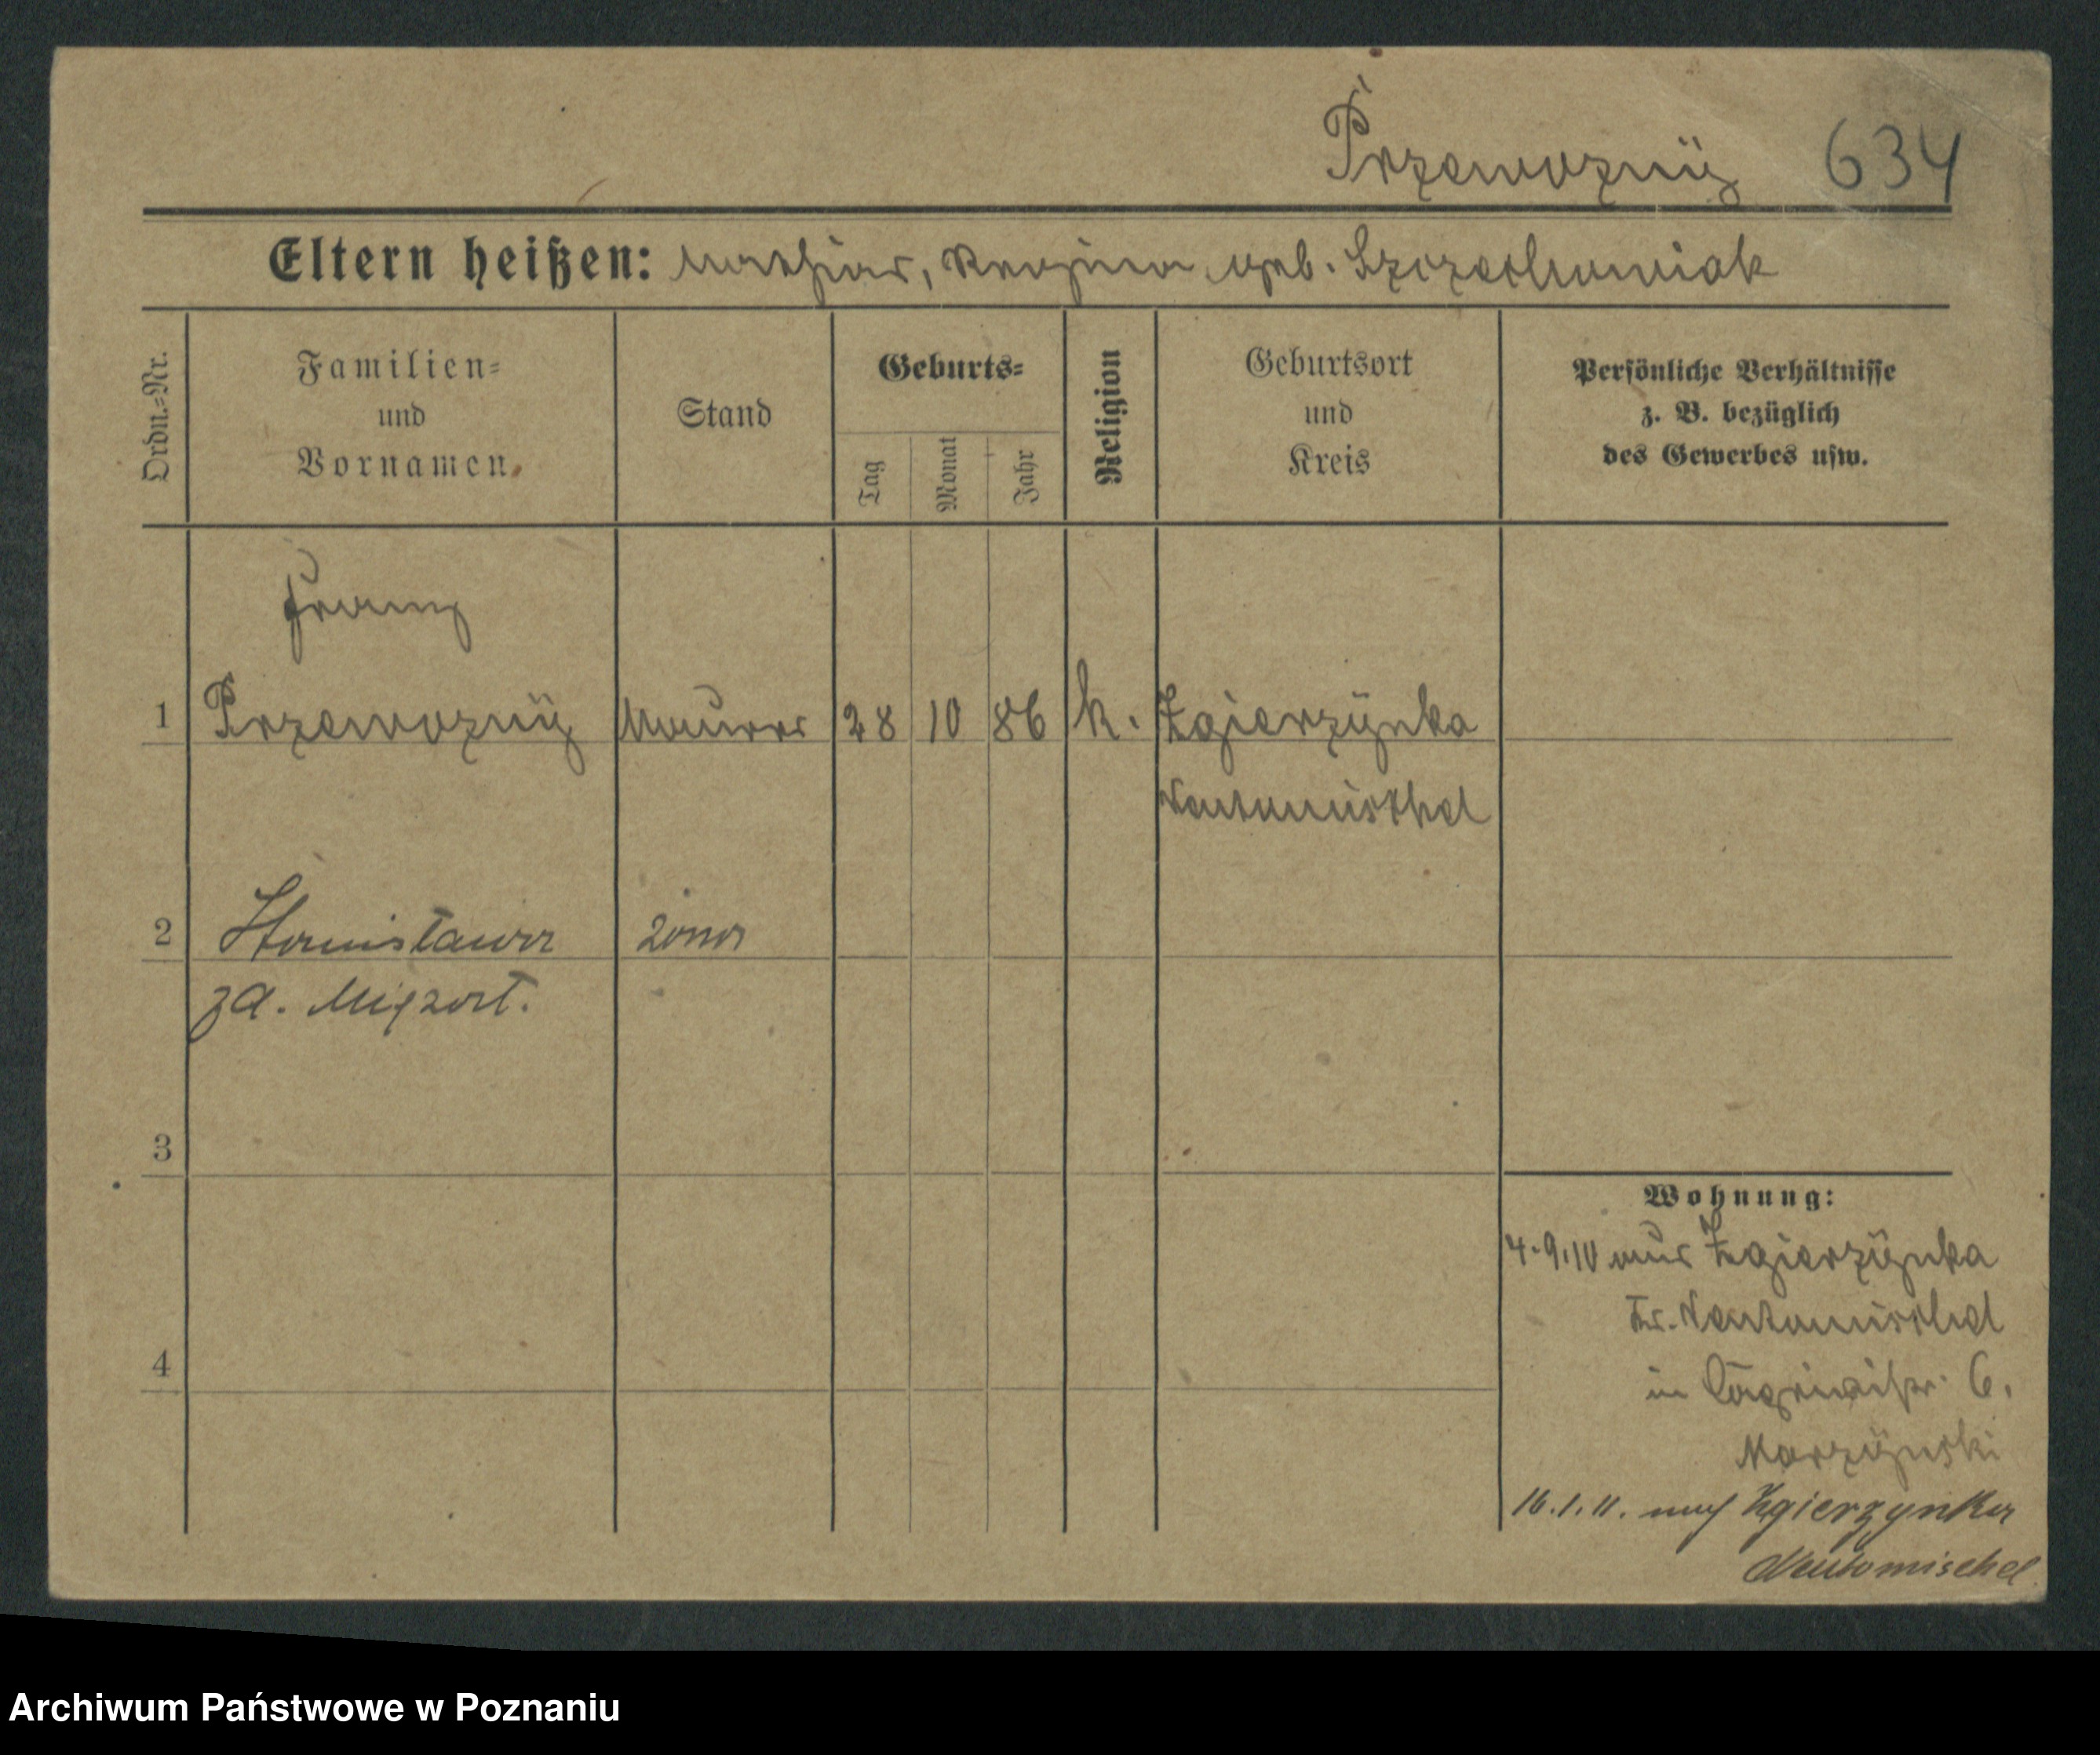 Przewoznÿ 634
Eltern heißen: Mathias, Regina geb. Szczechowiak
Ordn.=Nr.
Familien=
und
Vornamen
Stand
Geburts=
Tag
Monat
Jahr
Religion
Geburtsort
und
Kreis
Persönliche Verhältnisse
z. B. bezüglich
des Gewerbes usw.
Franz
1 Przewoznÿ Maurer 28 10 86 k. Zgierzÿnka
Neutomischel
2 Stanisława żona
zd.
3
4
Wohnung:
4.9.10 aus Zgierzÿnka
Kr. Neutomischel
in 6.
Marzÿnski
16.1.11. nach Zgierzynka
Neutomischel
Archiwum Państwowe w Poznaniu